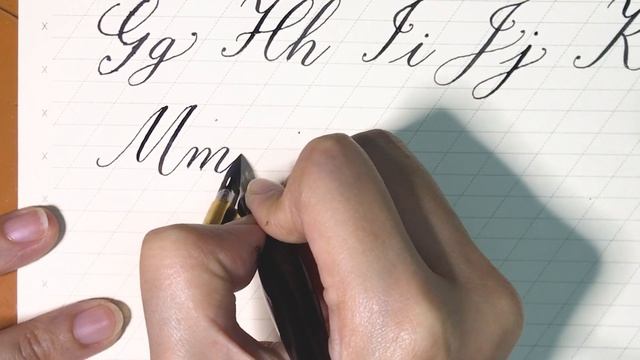 Gg Hh Ii Jj K
Mm